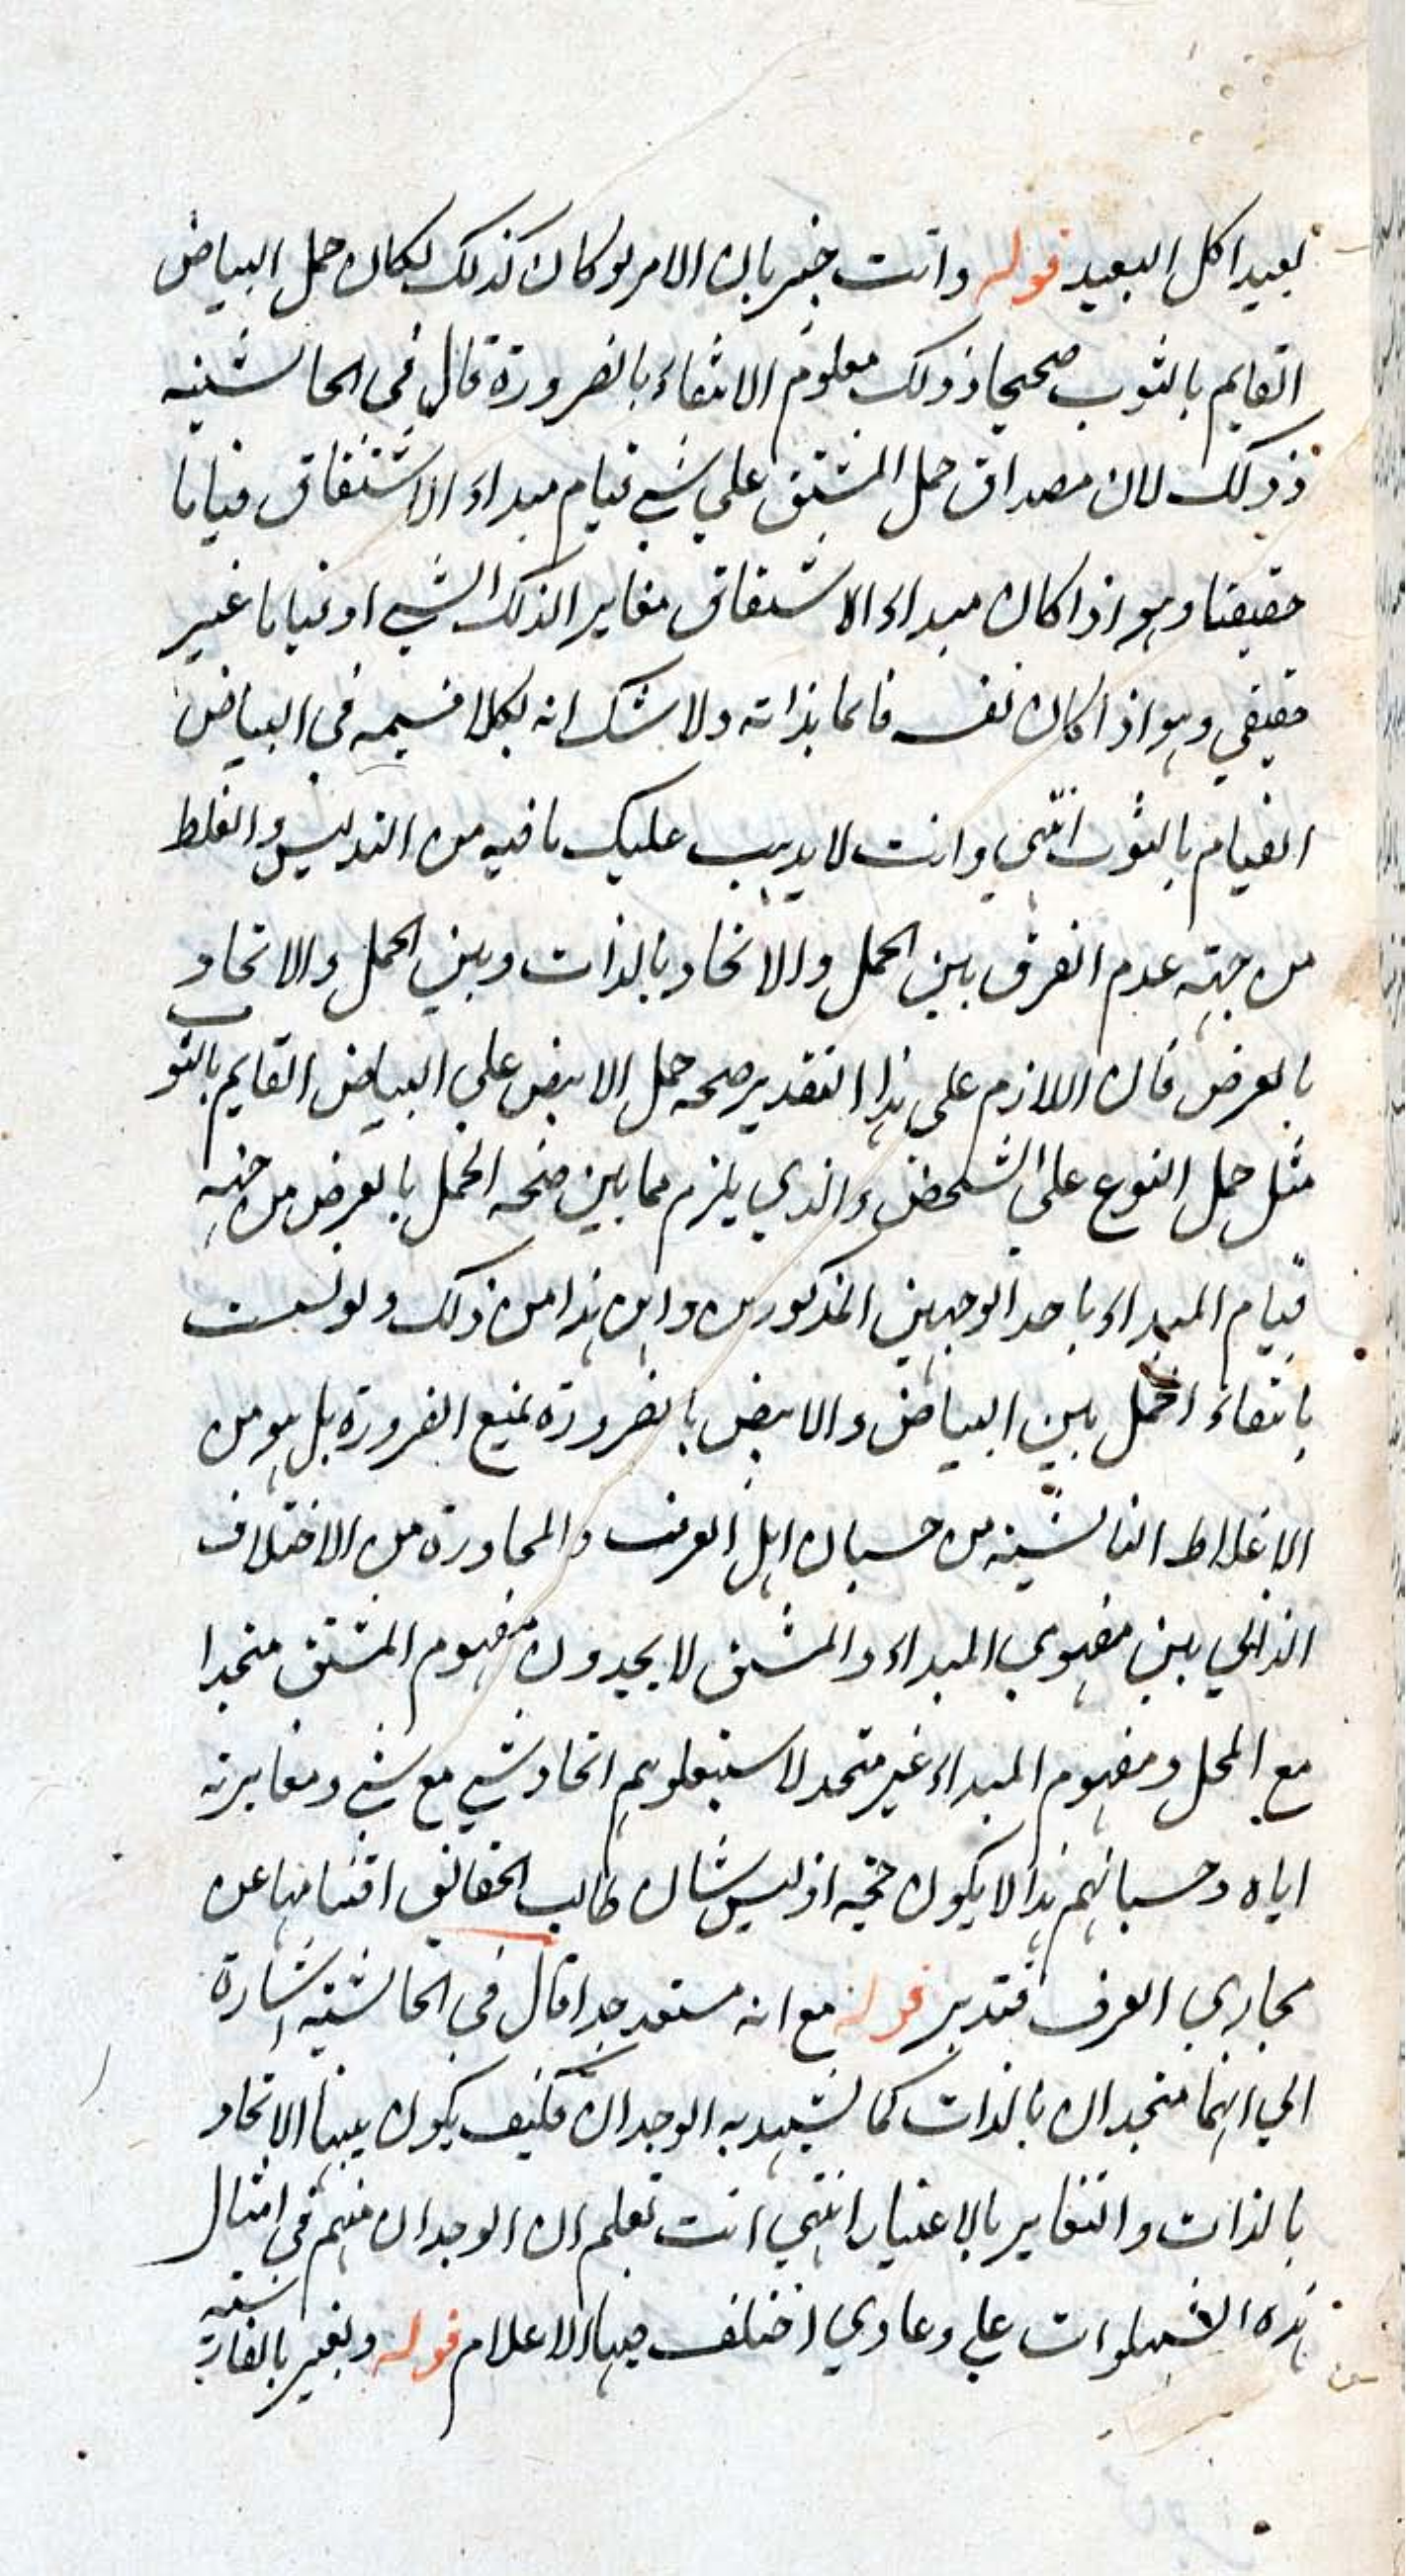 بعيدا كل البعيد قوله وانت خبير بان الامر لو كان كذلك لكان حمل البياض
القايم بالثوب صحيحا وذلك معلوم الانتفاء بالضرورة قال في الحاشية
وذلك لان مصداق حمل المشتق علي شي قيام مبداء الاشتقاق قياما
حقيقتا وهو اذا كان مبداء الاشتقاق مغايرا لذلك الشي او قياما غير
حقيقي وهو اذا كان نفسه قائما بذاته ولا شك انه بكلا قسيمه في البياض
القيام بالثوب انتهي وانت لا يذهب عليك ما فيه من التدليس والغلط
من جهته عدم الفرق بين الحمل والاتحاد بالذات وبين الحمل والاتحاد
بالعرض فان اللازم على هذا التقدير صحه حمل الابيض علي البياض القايم بالثو
مثل حمل النوع علي الشخص والذي يلزم مما بين صحه الحمل بالعرض من جهه
قيام المبداء باحد الوجهين المذكورين واين هذا من ذلك ولو تشبث
بانتفاء الحمل بين البياض والابيض بالضرورة نمنع الضرورة بل هو من
الاغلاط الناشيه من حسبان اهل العرف والمحاورة من الاختلاف
الذاتي بين مفهومي المبداء والمشتق لا يجدون مفهوم المشتق متحدا
مع المحل ومفهوم المبداء غير متحد لا ستبعادهم اتحاد شي مع شي ومغايرته
اياه وحسبانهم هذا لا يكون حجيه اذ ليس شان طالب الحقائق اقتناصها عن
مجاري العرف فتدبر قوله مع انه مستبعد جدا قال في الحاشية اشارة
الي انهما متحدان بالذات كما يشهد به الوجدان فكيف يكون بينهما الاتحاد
بالذات والتغاير بالاعتبار انتهي انت تعلم ان الوجدان متهم في امثال
هذه علي دعاوي اختلف فيها الاعلام قوله ويعبر بالفارسيته